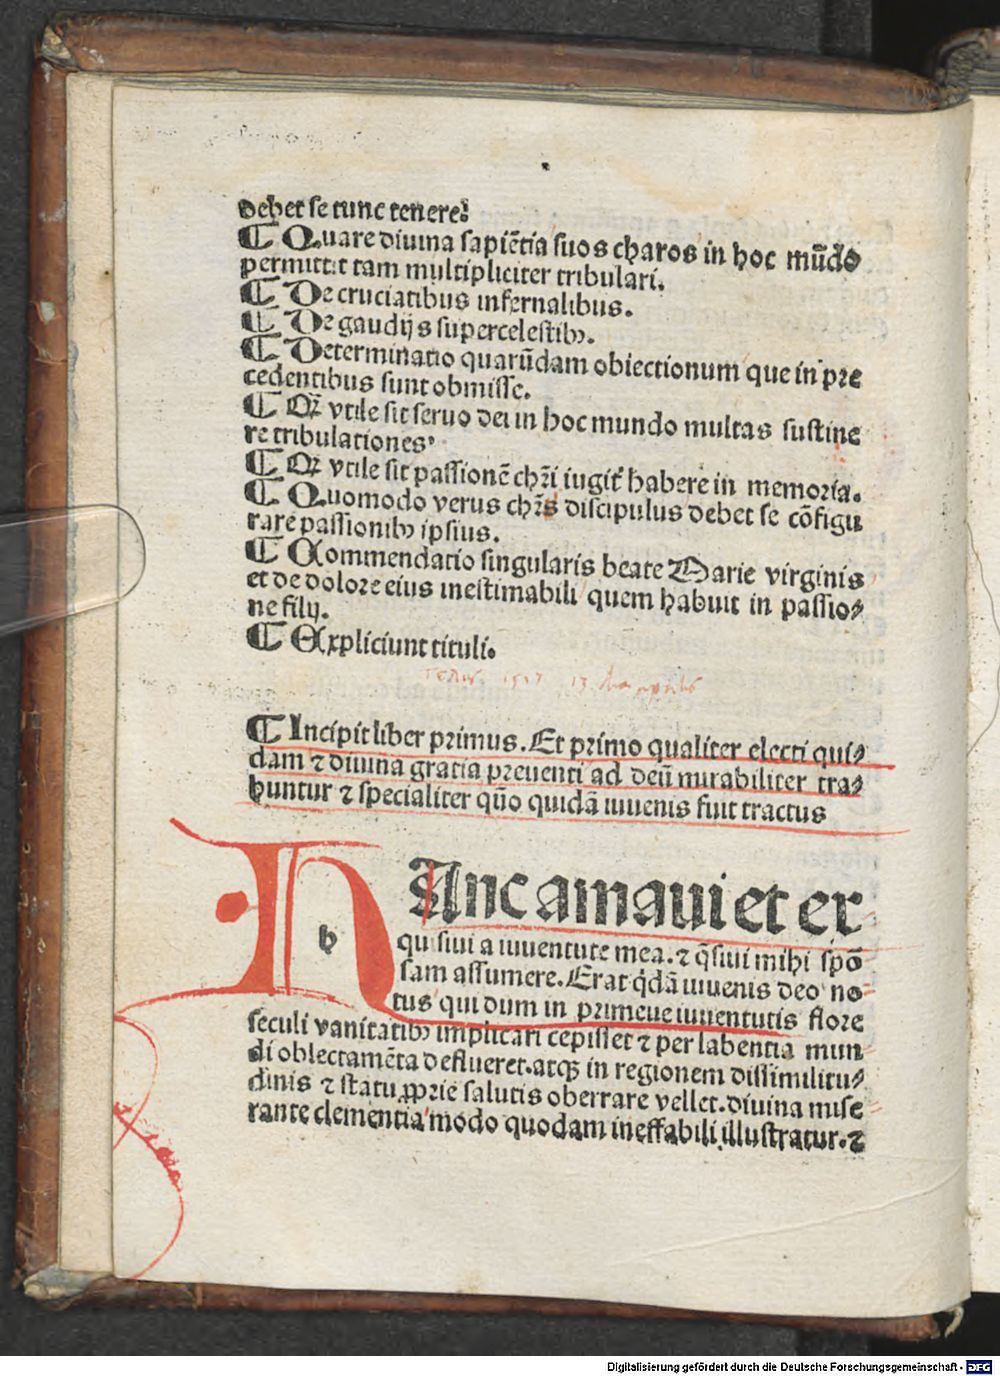 debet se tunc tenere?
¶ Quare diuina sapiētia suos charos in hoc mūdo
permittit tam multipliciter tribulari.
¶ De cruciatibus infernalibus.
¶ De gaudijs supercelestibꝰ.
¶ Determinatio quarūdam obiectionum que in pre
cedentibus sunt obmisse.
¶ Qꝛ vtile sit seruo dei in hoc mundo multas sustine
re tribulationes.
¶ Qꝛ vtile sit passionē chr̄i iugit̉ habere in memoria.
¶ Quomodo verus chr̄s discipulus debet se cōfigu
rare passionibꝰ ipsius.
¶ Commendatio singularis beate Marie virginis
et de dolore eius inestimabili quem habuit in passio⸗
ne filij.
¶ Expliciunt tituli.
¶ Incipit liber primus. Et primo qualiter electi qui⸗
dam ⁊ diuina gratia preuenti ad deū mirabiliter tra⸗
huntur ⁊ specialiter quō quidā iuuenis fuit tractus
h
HAnc amaui et ex
qui siui a iuuentute mea. ⁊ q̄siui mihi spō
sam assumere. Erat q̇dā iuuenis deo no⸗
tus qui dum in primeue iuuentutis flore
seculi vanitatibꝰ implicari cepisset ⁊ per labentia mun⸗
di oblectamēta deflueret. atqꝫ in regionem dissimilitu⸗
dinis ⁊ statu ꝓprie salutis oberrare vellet. diuina mise⸗
rante clementia modo quodam ineffabili illustratur. ⁊
Digitalisierung gefördert durch die Deutsche Forschungsgemeinschaft - DFG